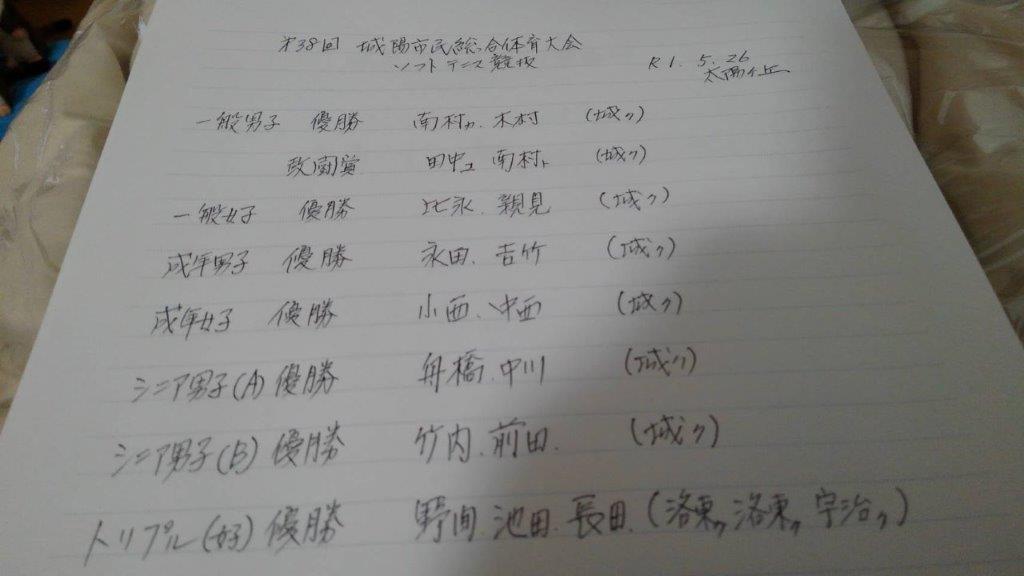 第38回 城陽市民総合体育大会
ソフトテニス競技
R1.5.26
太陽が丘
一般男子 優勝 南村カ.木村 (城ク)
敢闘賞 田中ユ 南村ト (城ク)
一般女子 優勝 比永.親見 (城ク)
成年男子 優勝 永田.吉竹 (城ク)
成年女子 優勝 小西.中西 (城ク)
シニア男子(A) 優勝 舟橋.中川 (城ク)
シニア男子(B) 優勝 竹内.前田. (城ク)
トリプル(女子) 優勝 野間.池田.長田.(洛東ク 洛東ク 宇治ク)